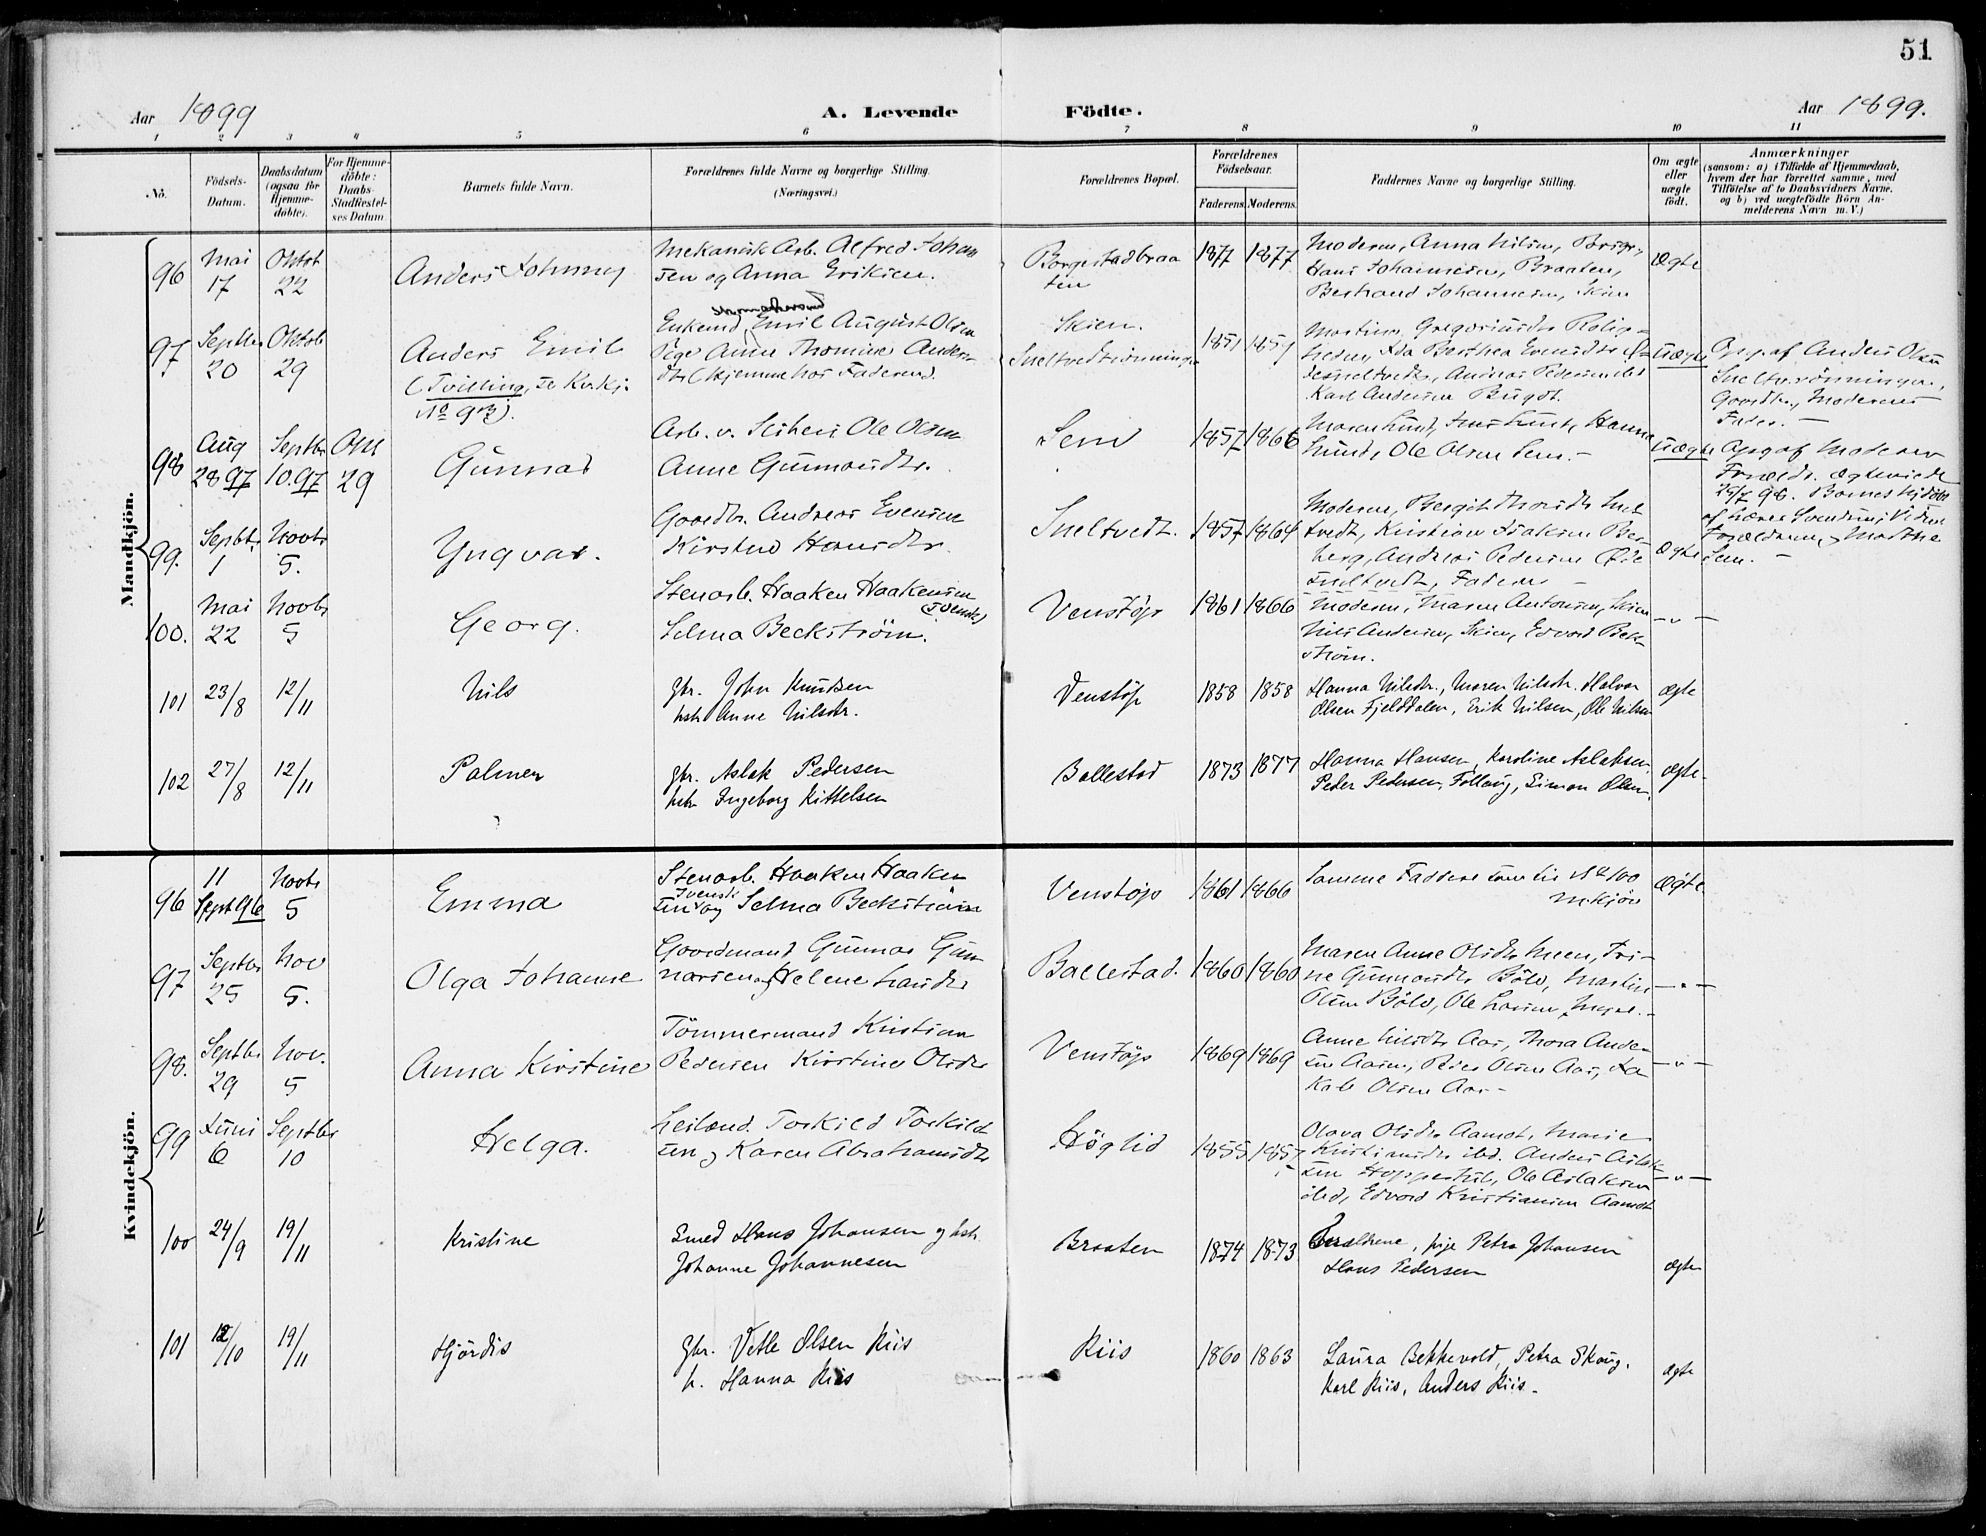 51
Aar 1899 A. Levende Födte. Aar 1899.
1 2 3 4 5 6 7 8 9 10 11
No.
Födsels-
Datum.
Daabsdatum
(ogsaa for
Hjemme-
döbte).
For Hjemme-
döbte:
Daabs-
Stadfæstel-
ses Datum.
Barnets fulde Navn.
Forældrenes fulde Navne og borgerlige Stilling.
(Næringsvei.)
Forældrenes Bopæl.
Forældrenes
Födselsaar.
Faderens. Moderens.
Faddernes Navne og borgerlige Stilling.
Om ægte
eller
uægte
födt.
Anmærkninger
(saasom: a) i Tilfælde af Hjemmedaab,
hvem der har forrettet samme, med
Tilföielse af to Daabsvidners Navne,
og b) ved uægtefödte Börn An-
melderens Navn m. V.)
Mandkjön.
96
Mai
17
Oktob
22
Anders Johnny
Mekanisk Arb. Alfred Johan
sen og Anna Eriksen.
Borgestadbraa
ten
1877 1877
Moderen, Anna Nilsen,
Hans Johannesen, Braaten,
Bertrand Johannesen, Skien
Ægte
97
Septbr
20
Oktob
29
Anders Emil
(Tvilling, se Kvkj.
No 93).
Enkemd Emil August Olsen
Pige Anne Thomine Anders-
dtr (hjemme hos Faderen).
Skien.
Sneltvedtrönningen
1851 1857
Karl Andersen Bugdt.
Uægte
Opg. af Anders Olsen
Sneltv.rönningen,
Gaardbr., Moderens
Fader. —
98
Aug
28 97
Septbr
10. 97
Okt
29
Gunnar
Arb. v. Sliberi Ole Olsen
Anne Gunnarsdtr.
Sem
1857 1866
Maren Lund, Jens Lund, Hanna
Lund, Ole Olsen Sem. —
Uægte
Opg af Moderen
Foræld. ægteviede
98. Barnet hjdöbt
af Lærer Svendsen; Vidner
Forældrene, Marthe
Sem. —
99.
Septbr
1
Novbr
5.
Yngvar.
Gaardbr. Andreas Evensen
Kirstine Hansdtr.
Sneltvedt.
1857 1864
Moderen, Bergit Snel
tvedt, Kristian Isaksen Ber-
berg, Andreas Pedersen Öde
sneltvedt, Faderen —
Ægte
100.
Mai
22
Novbr
5
Georg.
Stenarb. Haaken Haakensen
(svensk)
Selma Beckström.
Venstöp
1861 1866
Moderen, Maren Antonsen, Skien
Nils Andersen, Skien, Edvard Bek-
ström.
— " —
101
23/8
12/11
Nils
Gbr. John Knudsen
hstr Anne Nilsdtr.
Venstöp
1858 1858
Hanna Nilsdtr., Maren Nilsdtr. Halvor
Olsen Fjelddalen, Erik Nilsen, Ole Nilsen
ægte
102
27/8
12/11
Palmer
Gbr. Aslak Pedersen
hstr Ingeborg Kittelsen
Ballestad
1873 1877
Hanna Hansen, Karoline Aslaksen,
Peder Pedersen, Follaug, Simon Olsen.
ægte
Kvindekjön.
96
11
Sept 96
Novbr
5
Emma
Stenarb. Haaken Haaken
svensk
sen og Selma Beckström
Venstöp
1861 1866
Samme Faddere som til No 100
M.kjön
Ægte
97
Septbr
25
Nov
5.
Olga Johanne
Gaardmand Gunnar Gun
narsen og Helene Larsdtr
Ballestad.
1860 1860
Maren Anne Olsdtr Meen, Tri-
ne Gunnarsdtr Bölv, Martin
Olsen Bölv, Ole Larsen
— " —
98.
Septbr
29
Nov.
5
Anna Kirstine
Tömmermand Kristian
Pedersen Kirstine Olsdtr
Venstöp
1869 1869
Anne Nilsdtr Aas, Thora Ander
sen Aasen, Peder Olsen Aas, Ja
kob Olsen Aas —
— " —
99
Juni
6
Septbr
10
Helga.
Leilænd. Torkild Torkild
sen og Karen Abrahamsdtr
Höglid
1855 1857
Olava Olsdtr Aamot, Marie
Kristiansdtr ibd. Anders Aslak
sen Hoppestul, Ole Aslaksen
ibd, Edvard Kristiansen Aamot
— " —
100
24/9
19/11
Kristine
Smed Hans Johansen og hstr.
Johanne Johannesen
Braaten
1874 1873
Forældrene, pige Petra Johansen
Hans Pedersen
ægte
101
12/10
19/11
Hjördis
Gbr. Vetle Olsen Riis
h. Hanna Riis
Riis
1860 1863
Laura Bekkevold, Petra Skaug,
Karl Riis, Anders Riis.
ægte